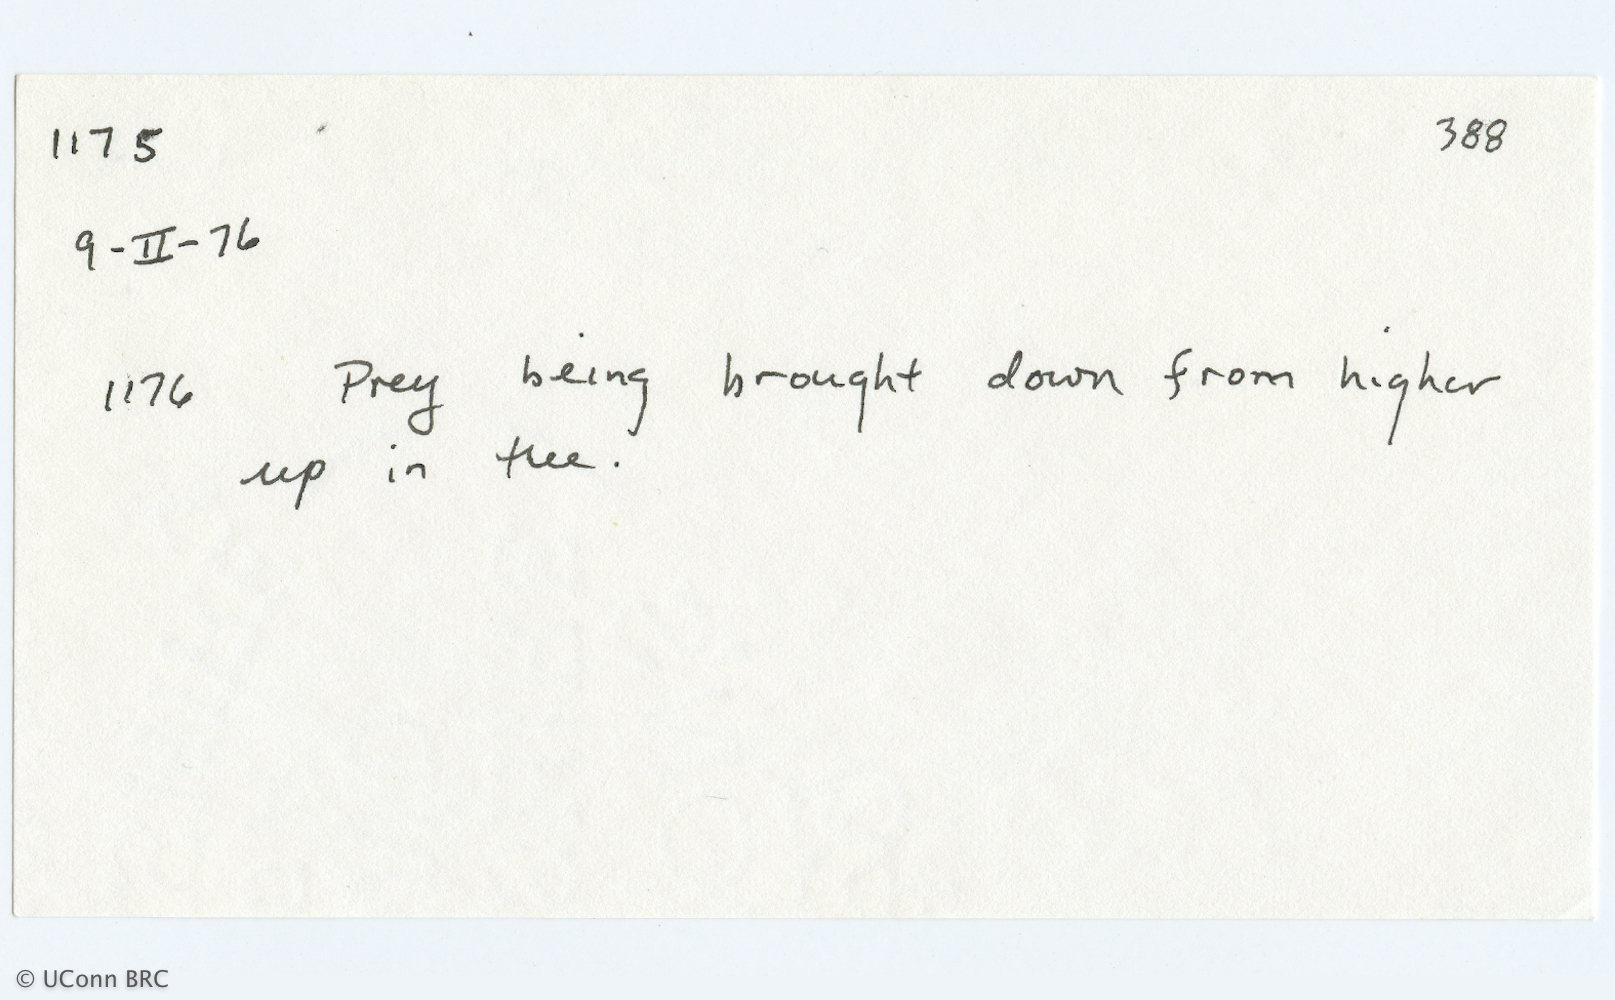 1175 388
9-II-76
1176 Prey being brought down from higher
up in tree.
© UConn BRC